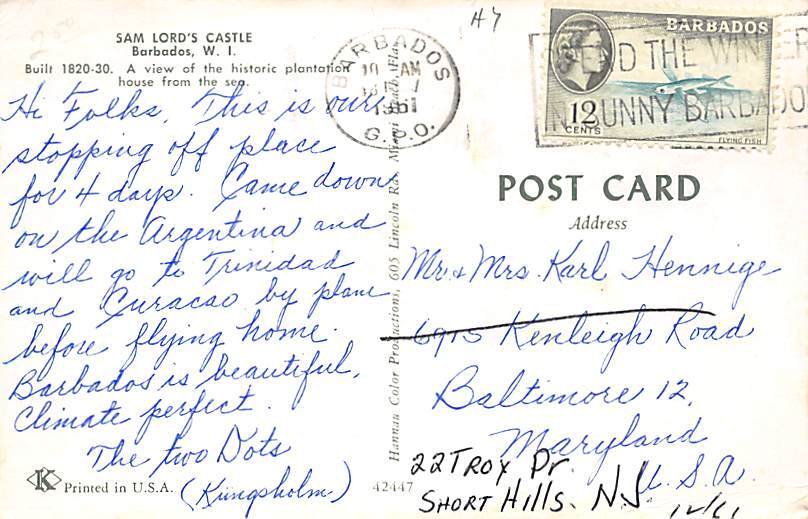 SAM LORD'S CASTLE
Barbados, W. I.
Built 1820-30. A view of the historic plantation
house from the sea.
Hi Folks, This is our
stopping off place
for 4 days. Came down
on the Argentina and
will go to Trinidad
and Curacao by plane
before flying home.
Barbados is beautiful,
Climate perfect.
The two Dots
(Kungsholm)
K Printed in U.S.A.
Hannau Color Productions, 605 Lincoln Rd., Miami Beach, Fla.
42447
H7
BARBADOS
10 AM
1961
G.P.O.
BARBADOS
12
CENTS
FLYING FISH
THE WINTER
IN SUNNY BARBADOS
POST CARD
Address
Mr. & Mrs. Karl Hennige
6915 Kenleigh Road
Baltimore 12,
Maryland
U. S. A.
22 TROY Dr
SHORT Hills. NJ
12/61